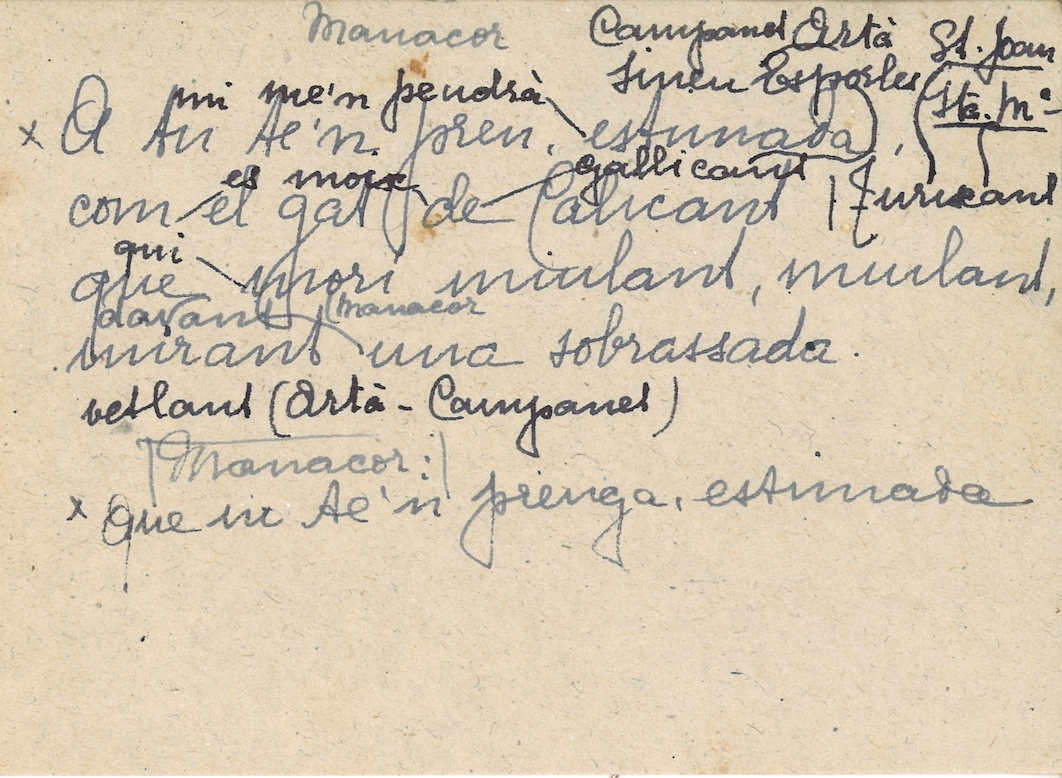 Manacor Campanet Artà St. Joan
mi me'n pendrà Sineu Esporles Sta. Mª
x A tu te'n pren, estimada,
es moix gallicant
com el gat de Calicant Furicant
qui
que morí miulant, miulant,
davant (Manacor
mirant una sobrassada.
vetlant (Artà - Campanet)
Manacor:
x Que en te'n prenga, estimada